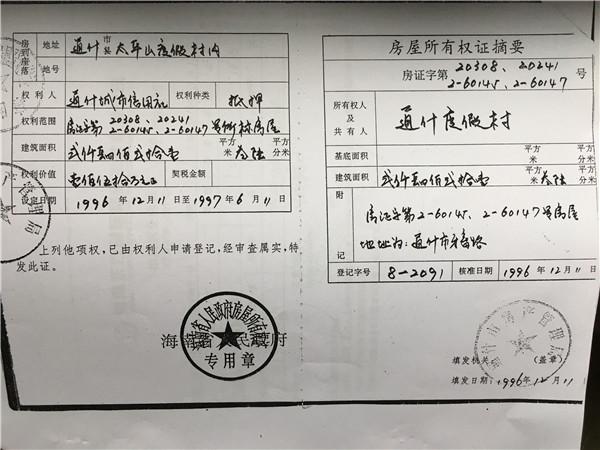 房屋座落
地址
通什市县太平山度假村内
地号
权利人
通什城市信用社
权利种类
抵押
权利范围
房证字第20308、20241
2-60145、2-60147号所标房屋
建筑面积
贰仟
佰贰拾壹
平方米
叁陆
平方分米
权利价值
壹佰伍拾万元正
契税金额
设定日期
1996年12月11日至1997年6月11日
上列他项权,已由权利人申请登记,经审查属实,特
发此证。
海南省人民政府
海南省人民政府房屋所有权
专用章
房屋所有权证摘要
房证字第20308、20241
2-60145、2-60147号
所有权人及共有人
通什度假村
基底面积
平方米
平方分米
建筑面积
贰仟
佰贰拾壹
平方米
叁陆
平方分米
附记
房证字第2-60145、2-60147号房屋
地址为:通什市
路
登记字号
8-2091
核准日期
1996年12月11日
通什市房产管理局
填发机关
(盖章)
填发日期:1996年12月11
产管理局